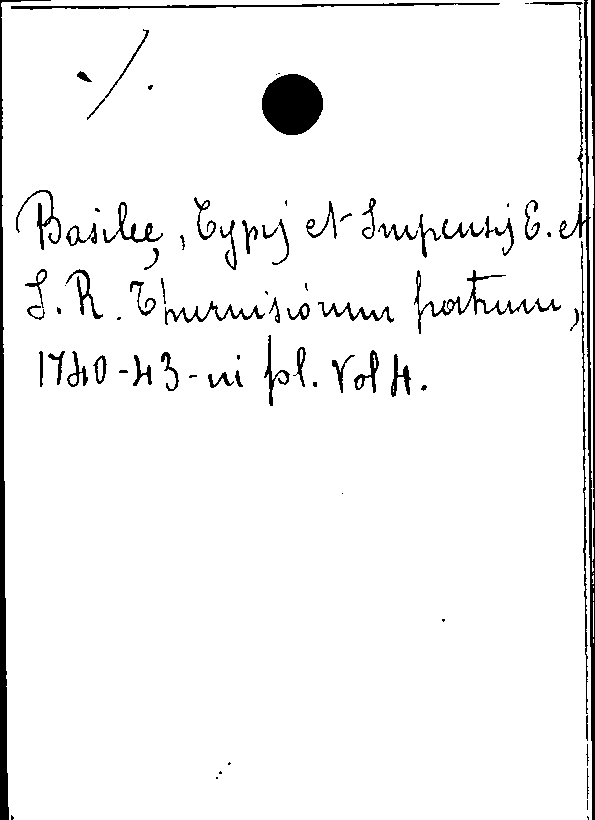 ./.
Basileę, Typis et Impensis E. et
J. R. Thurnisiorum fratrum,
1740-43-in fol. Vol 4.